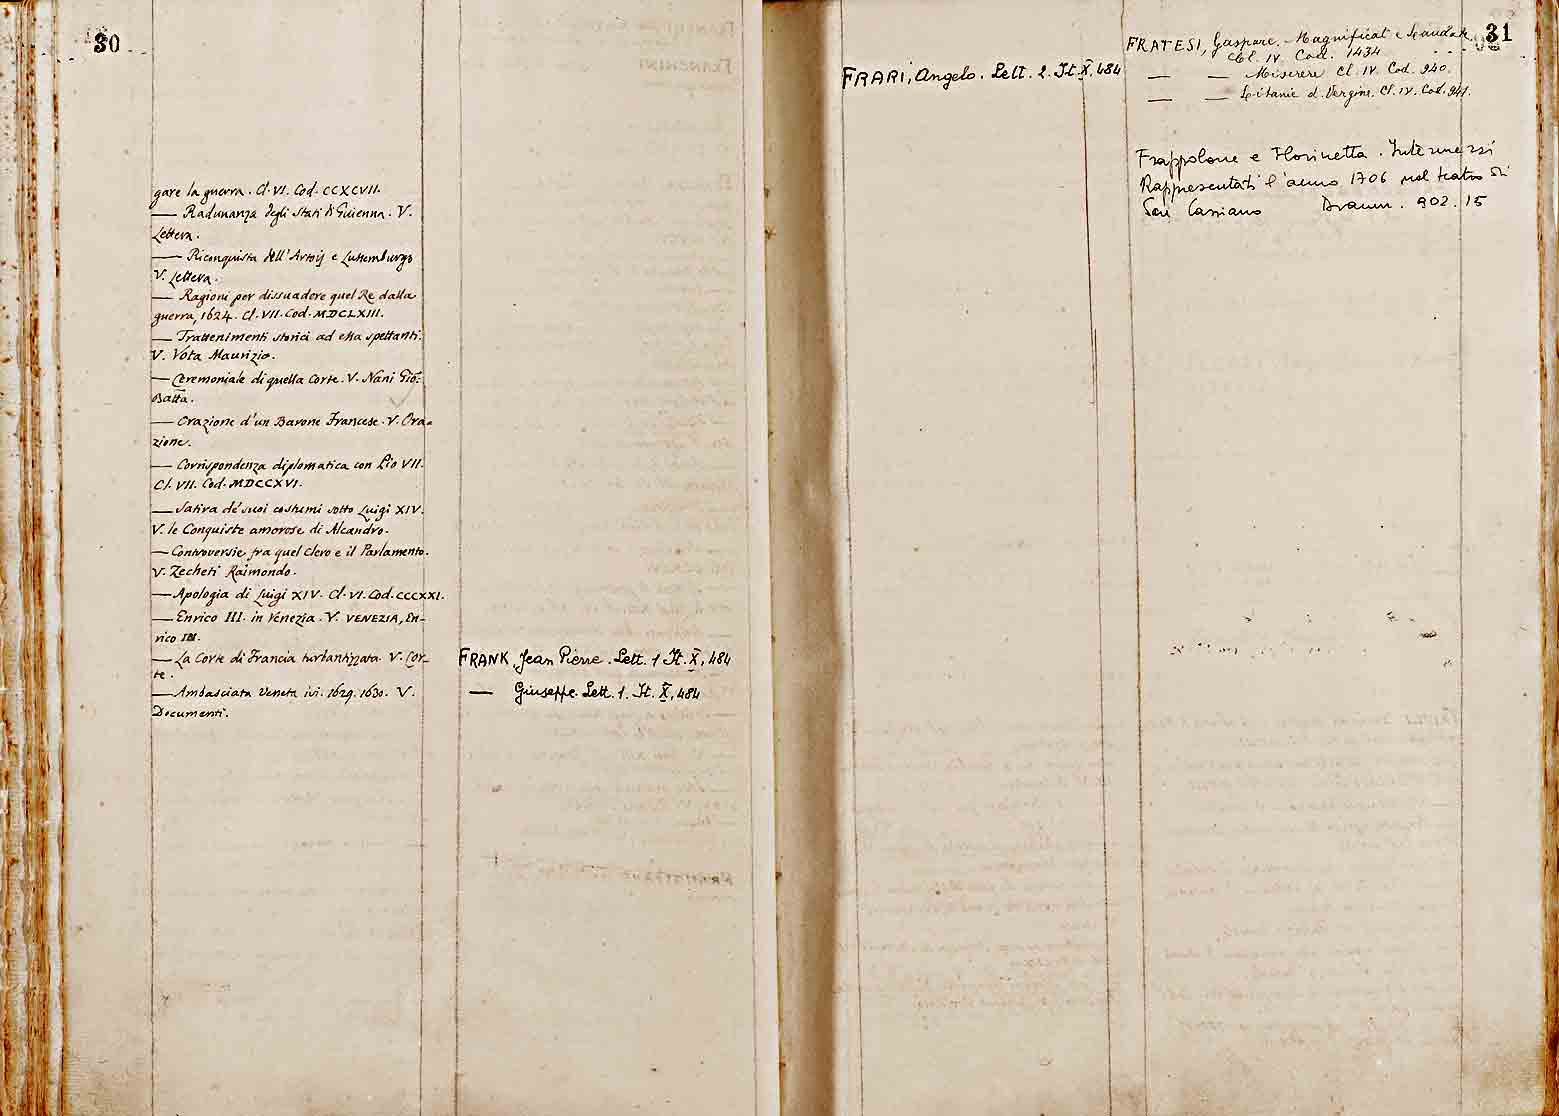 30
gare la guerra. Cl. VI. Cod. CCXCVII.
— Radunanza degli Stati di Guienna. V.
Lettera.
— Riconquista dell'Artoij e Lussemburgo
V. Lettera.
— Ragioni per dissuadere quel Re dalla
guerra, 1624. Cl. VII. Cod. MDCLXIII.
— Trattenimenti storici ad essa spettanti.
V. Vota Maurizio.
— Ceremoniale di quella Corte. V. Nani Gio:
Batta.
— Orazione d'un Barone Francese. V. Ora=
zione.
— Corrispondenza diplomatica con Pio VII.
Cl. VII. Cod. MDCCXVI.
— Satira de' suoi costumi sotto Luigi XIV.
V. le Conquiste amorose di Alcandro.
— Controversie fra quel Clero e il Parlamento.
V. Zecheti Raimondo.
— Apologia di Luigi XIV. Cl. VI. Cod. CCCXXI.
— Enrico III. in Venezia. V. VENEZIA, En-
rico III.
— La Corte di Francia turbantizzata. V. Cor-
te.
— Ambasciata Veneta ivi. 1629. 1630. V.
Documenti.
FRANK, Jean Pierre. Lett. 1 It. X, 484
— Giuseppe. Lett. 1. It. X, 484
31
FRARI, Angelo. Lett. 2. It. X, 484
FRATESI, Gaspare. Magnificat e Laudate
Cl. IV. Cod. 1434
— — Miserere Cl. IV. Cod. 940.
— — Litanie d. Vergine. Cl. IV. Cod. 941.
Frappolone e Florinetta. Intermezzi
Rappresentati l'anno 1706 nel teatro di
San Cassiano Dramm. 902. 15